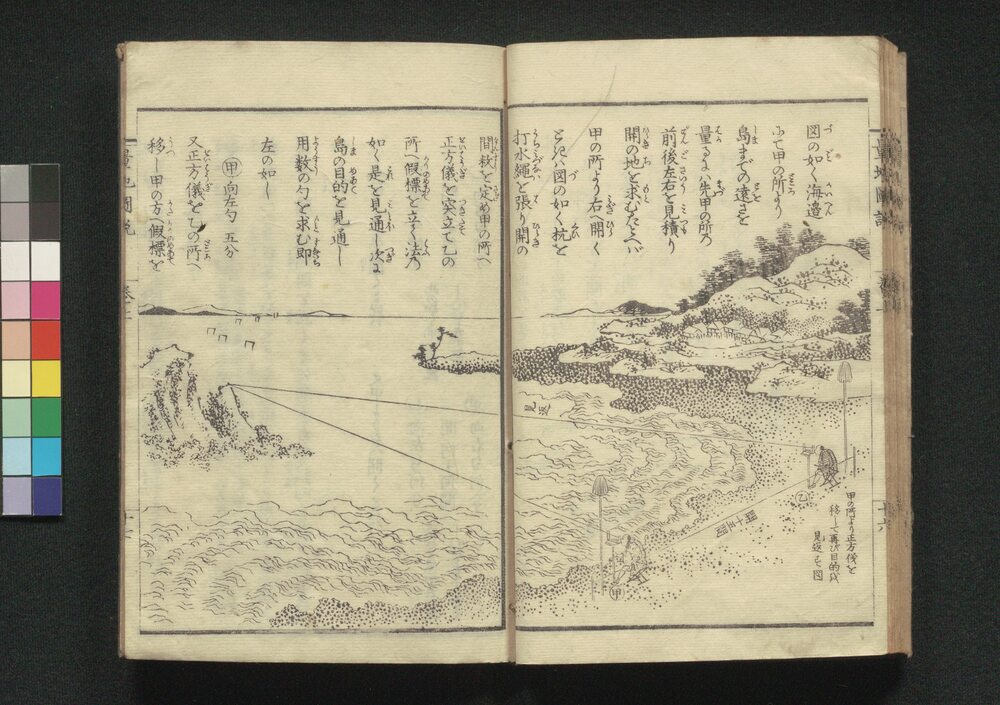 図の如く海邉
にて甲の所より
島までの遠さを
量るよハ先甲の所の
前後左右を見積り
開の地を求むたとへバ
甲の所より右へ開く
ときハ図の如く杭を
打水縄を張り開の
間数を定め甲の所へ
正方儀を突立て乙の
所へ假標を立しめ法の
如く是を見通し次に
島の目的を見通し
用数の勾を求む即
左の如し
甲 向左勾 五分
又正方儀を乙の所へ
移し甲の方へ假標を
見返
四十五間
乙
甲
甲の所より正方儀を
移して再び目的を
見返す図
量地圖説